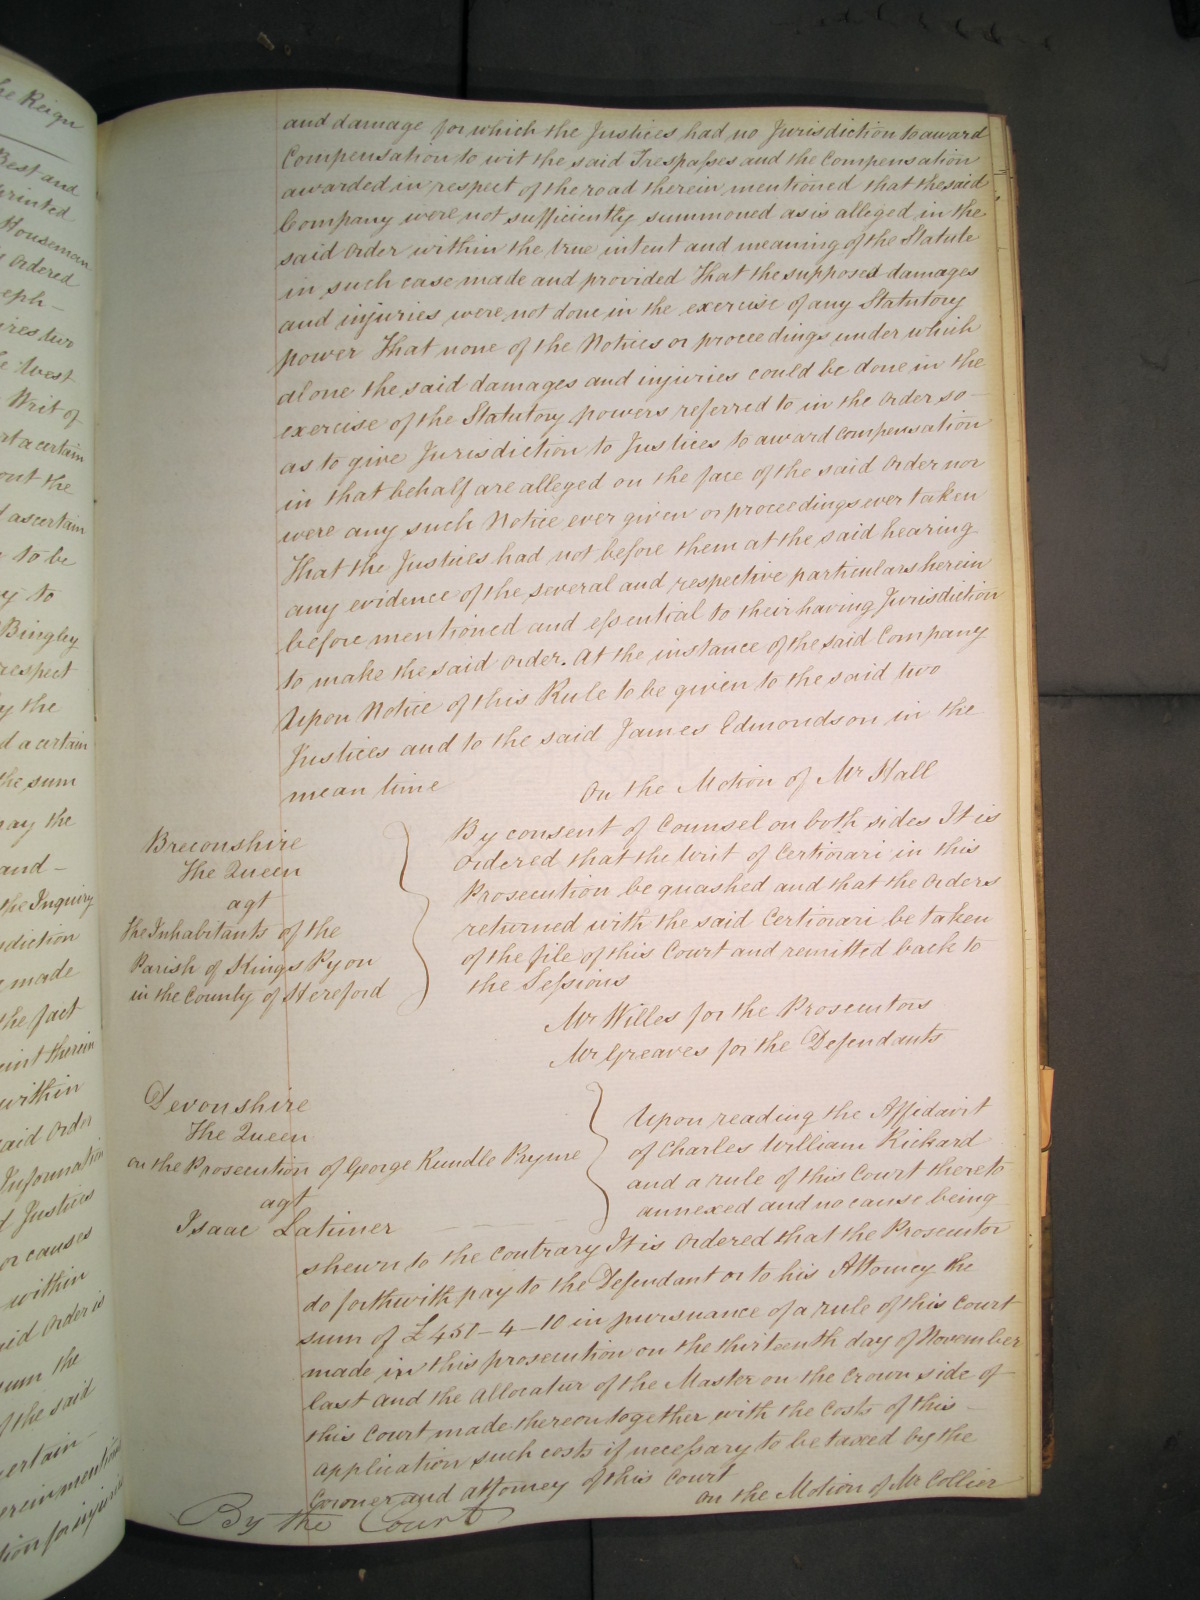 he Reign
Best and
printed
Houseman
ordered
eph
ires two
West
Writ of
rt a certain
out the
ascertain
to be
y to
Bingley
respect
y the
d a certain
the sum
pay the
and
the Inquiry
diction
made
the fact
therein
within
said Order
Information
Justices
or causes
within
said Order is
sum the
of the said
certain
herein mentioned
and damage for which the Justices had no Jurisdiction to award
Compensation to wit the said Trespasses and the Compensation
awarded in respect of the road therein mentioned that the said
Company were not sufficiently summoned as is alleged in the
said Order within the true intent and meaning of the Statute
in such case made and provided That the supposed damages
and injuries were not done in the exercise of any Statutory
power That none of the Notices or proceedings under which
alone the said damages and injuries could be done in the
exercise of the Statutory powers referred to in the Order so
as to give Jurisdiction to Justices to award compensation
in that behalf are alleged on the face of the said Order nor
were any such Notice ever given or proceedings ever taken
That the Justices had not before them at the said hearing
any evidence of the several and respective particulars herein
before mentioned and essential to their having Jurisdiction
to make the said Order. At the instance of the said Company
Upon Notice of this Rule to be given to the said two
Justices and to the said James Edmondson in the
mean time
On the Motion of Mr Hall
Breconshire
The Queen
agt
The Inhabitants of the
Parish of Kings Pyon
in the County of Hereford
By consent of Counsel on both sides It is
Ordered that the Writ of Certiorari in this
Prosecution be quashed and that the Orders
returned with the said Certiorari be taken
of the file of this Court and remitted back to
the Sessions
Mr Willes for the Prosecutors
Mr Greaves for the Defendants
Devonshire
The Queen
on the Prosecution of George Rundle Pryme
agt
Isaac Latimer
Upon reading the Affidavit
of Charles William Rickard
and a rule of this Court thereto
annexed and no cause being
shewn to the contrary It is Ordered that the Prosecutor
do forthwith pay to the Defendant or to his Attorney the
sum of £451-4-10 in pursuance of a rule of this Court
made in this prosecution on the thirteenth day of November
last and the allocatur of the Master on the Crown side of
this Court made thereon together with the Costs of this
application such costs if necessary to be taxed by the
Coroner and Attorney of this Court
On the Motion of Mr Collier
By the Court